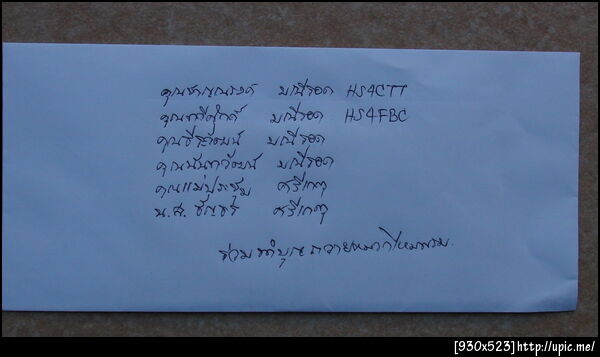 คุณชาญณรงค์ มณีรอด HS4CTT
คุณทวีศักดิ์ มณีรอด HS4FBC
คุณธีระวัฒน์ มณีรอด
คุณนันทวัฒน์ มณีรอด
คุณแม่ประชุม ศรีเกตุ
น.ส. ศรีเกตุ
ร่วมทำบุญถวาย
[930x523]http://upic.me/